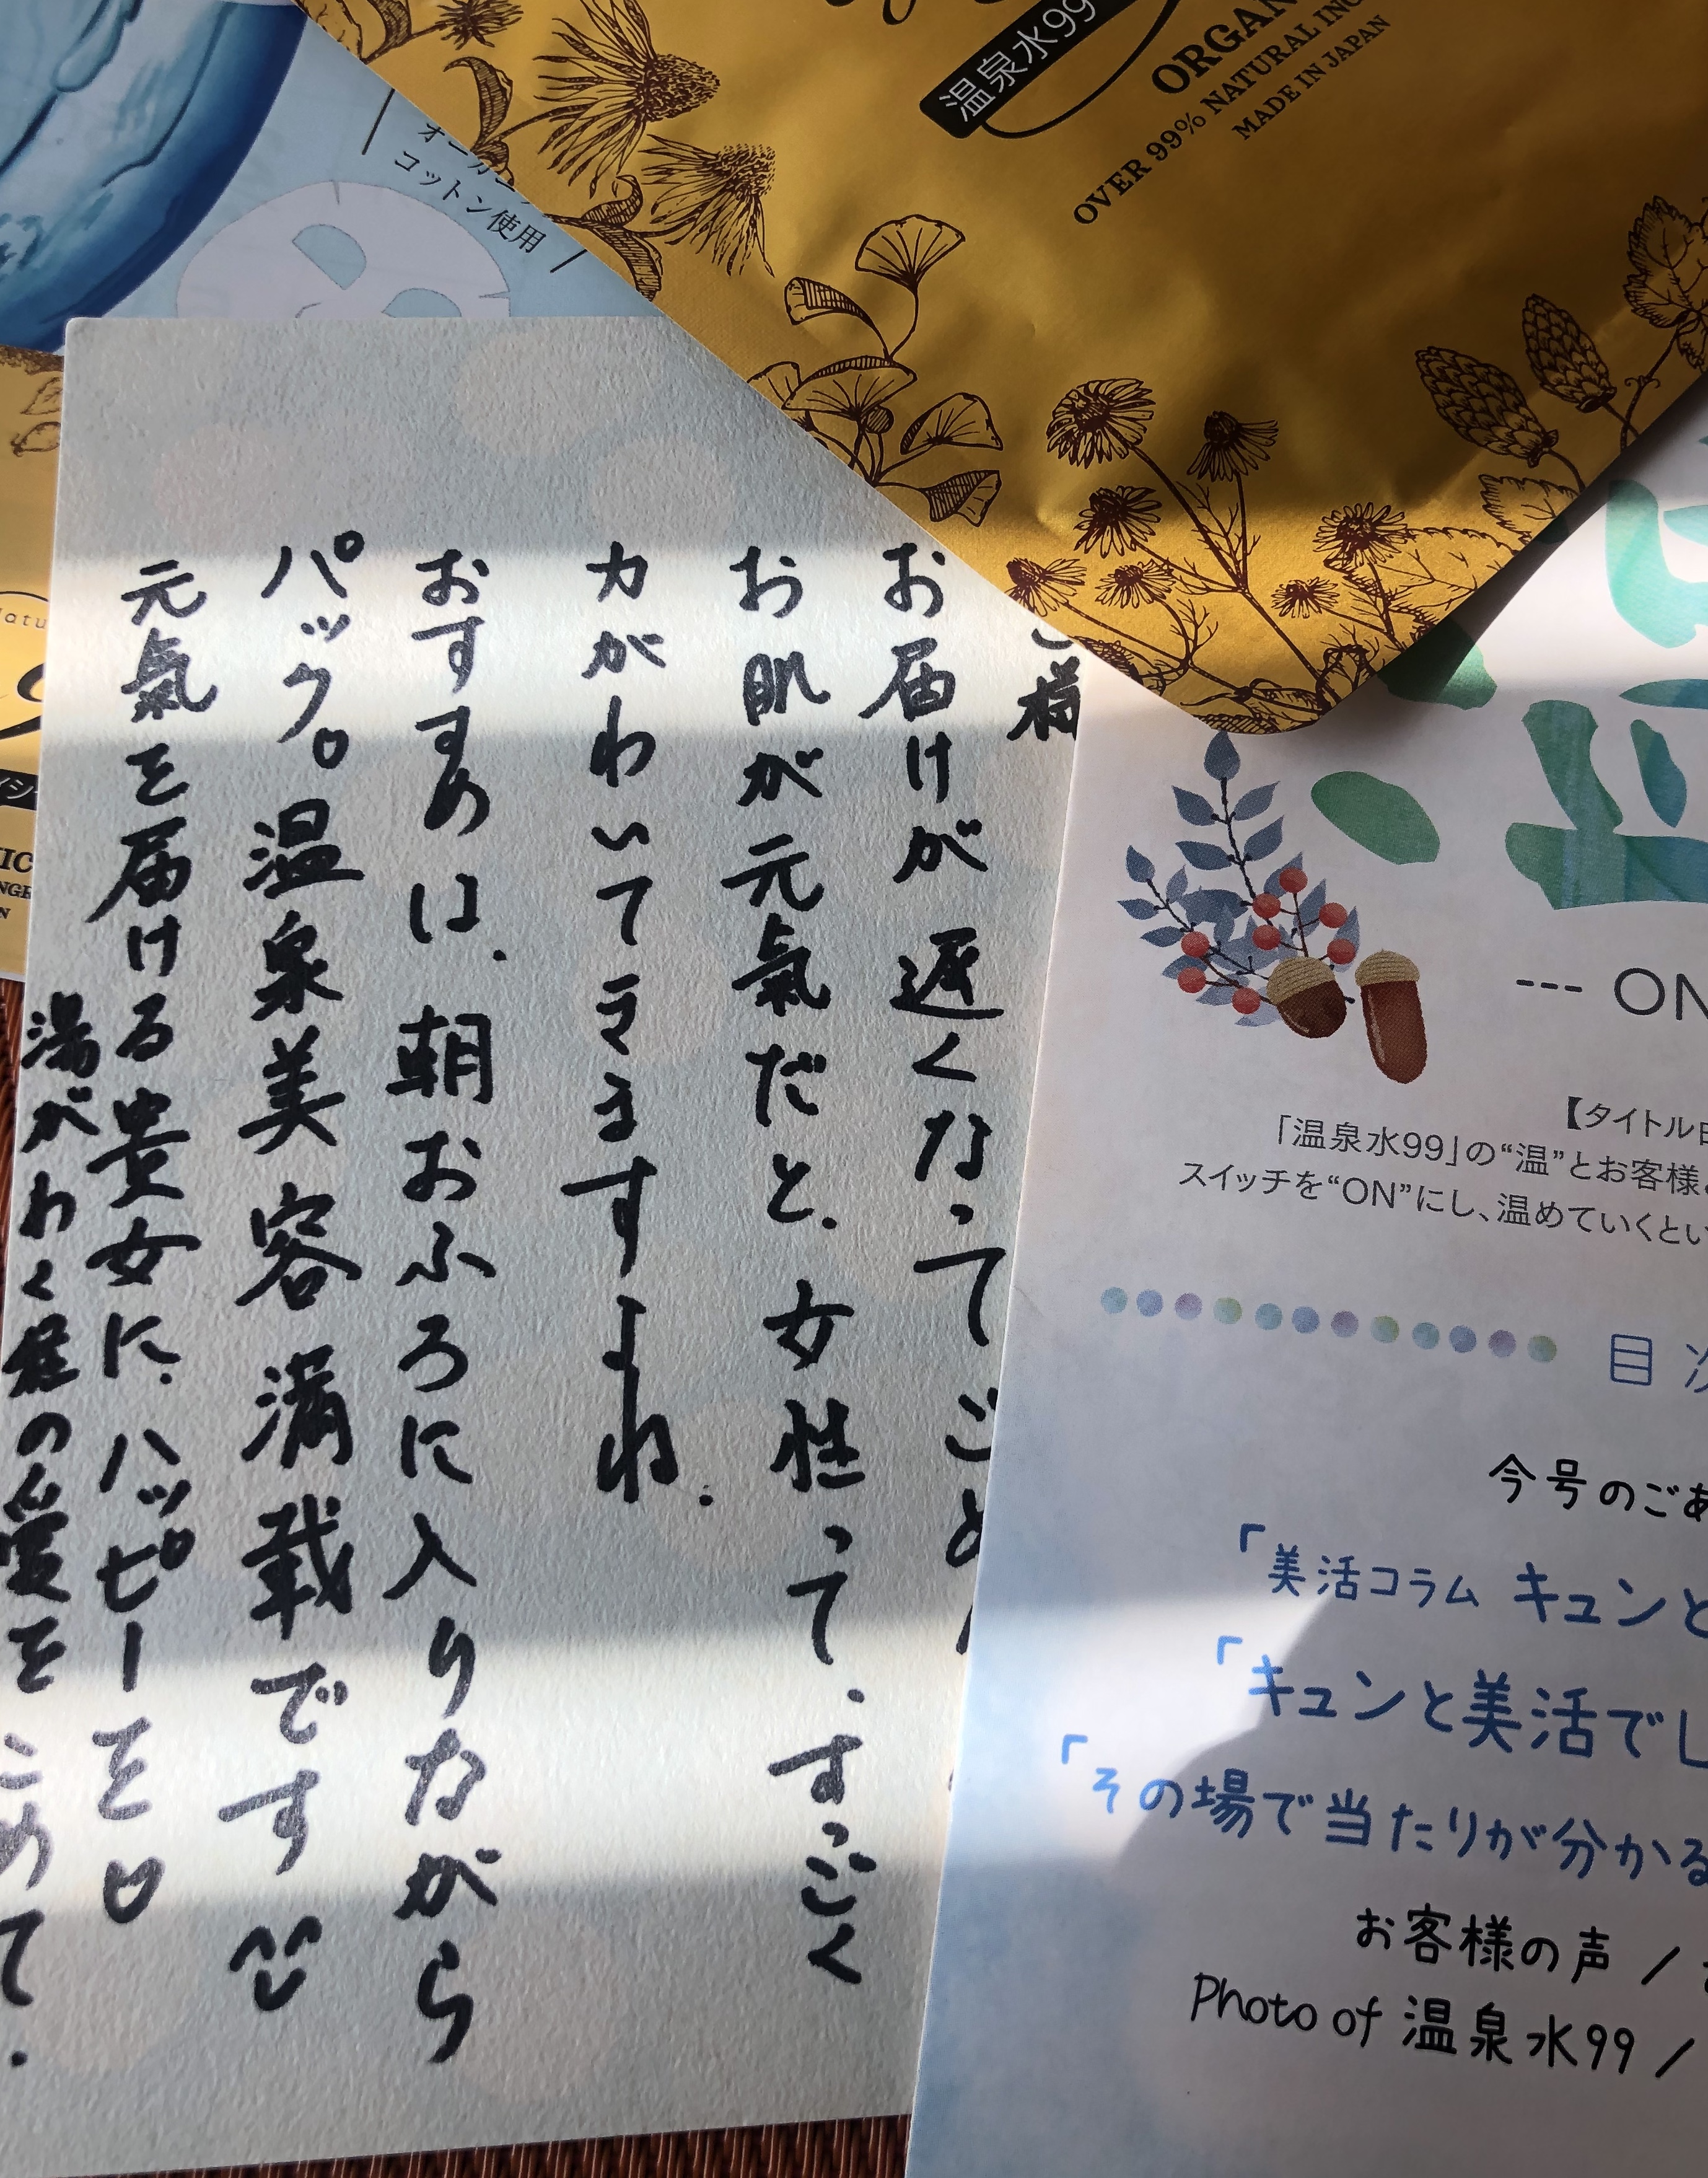 温泉水99
ORGAN
OVER 99% NATURAL ING
MADE IN JAPAN
コットン使用
様
お届けが遅くなってごめん
お肌が元氣だと、女性って、すごく
力がわいてきますよね。
おすすめは、朝おふろに入りながら
パック。温泉美容満載です
元氣を届ける貴女に、ハッピーを
湯がわく庭の愛をこめて、
--- ON
【タイトル
「温泉水99」の“温”とお客様
スイッチを“ON”にし、温めていくとい
目次
今号のごあ
「美活コラム キュンと
「キュンと美活でし
「その場で当たりが分かる
お客様の声 /
Photo of 温泉水99 /